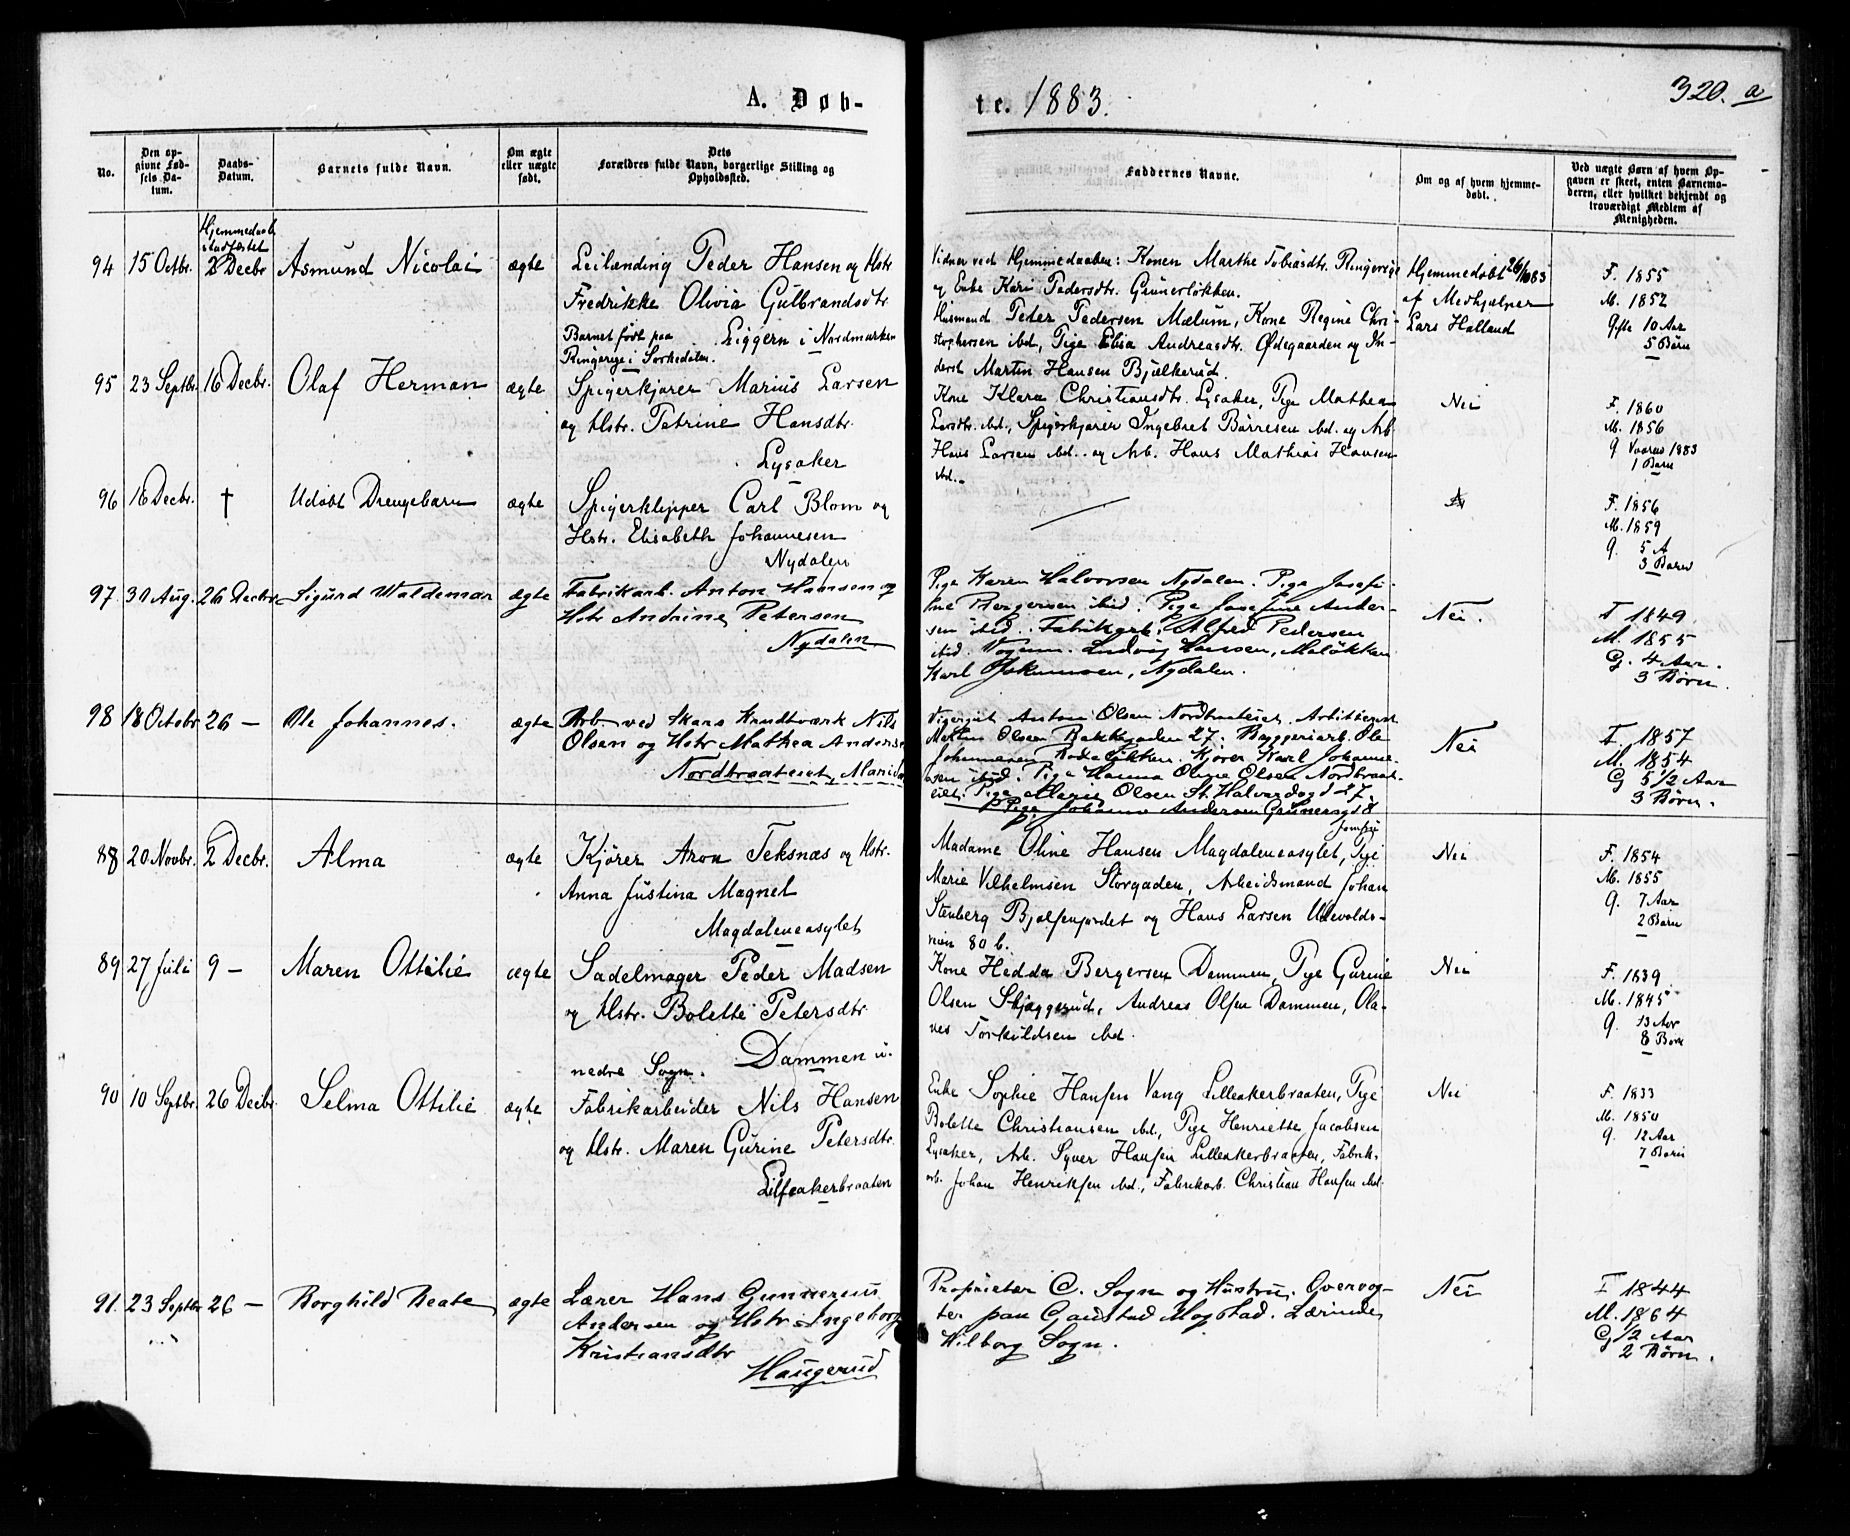 A. Døb-
te. 1883.
320. a
No.
Den op-
givne Fød-
sels Da-
tum.
Daabs-
Datum.
Barnets fulde Navn.
Om ægte
eller uægte
født.
Dets
Forældres fulde Navn, borgerlige Stilling og
Opholdssted.
Faddernes Navne.
Om og af hvem hjemme-
døbt.
Ved uægte Børn af hvem Op-
gaven er skeet, enten Barnemo-
deren, eller hvilket bekjendt og
troværdigt Medlem af
Menigheden.
94 15 Octbr. Hjemmedaab
stadfæstet
2 Decbr Asmund Nicolai ægte Leilænding Peder Hansen og Hstr
Fredrikke Olivia Gulbrandsdtr
Barnet født paa Liggern i Nordmarken
Ringerige i Sørkedalen.
Vidner ved Hjemmedaaben: Konen Marthe Tobiasdtr. Ringerige
og Enke Kari Pedersdtr. Grünerløkken.
Husmand Peder Pedersen Mælum, Kone Regine Chri-
stophersen ibd, Pige Elisa Andreasdtr. Ødegaarden og In-
derst Martin Hansen Bjølkerud.
Hjemmedøbt 26/10 83
af Medhjælper
Lars Holland
F. 1855
M. 1852
Gifte 10 Aar
5 Børn
95 23 Septbr. 16 Decbr. Olaf Herman ægte Spigerkjører Marius Larsen
og Hstr. Petrine Hansdtr.
Lysaker
Kone Klara Christiansdtr. Lysaker, Pige Mathea
Larsdtr. ibd., Spigerkjører Ingebret Børresen ibd. og Arb.
Hans Larsen ibd. og Arb. Hans Mathias Hansen
ibd.
Nei
F. 1860
M. 1856
g. Vaaren 1883
1 Barn
96 16 Decbr. † Udøbt Drengebarn ægte Spigerklipper Carl Blom og
Hstr. Elisabeth Johannesen
Nydalen
F. 1856
M. 1859
g. 5 A
3 Børn
97. 31 Aug. 26 Decbr. Sigurd Waldemar ægte Fabrikarb. Anton Hansen og
Hstr Andrine Petersen
Nydalen
Pige Karen Halvorsen Nydalen. Pige Josefi-
ne Bergersen ibid. Pige Josefine Ander-
sen ibid. Fabrikarb. Alfred Pedersen
ibid. Vognm. Ludvig Hansen, Maløkken
Karl Nydalen.
Nei.
F 1849.
M. 1855
G. 4 Aar.
3 Børn.
98 18 Octobr 26 — Ole Johannes. ægte Arb. ved Nils
Olsen og Hstr Mathea Anderse
Nordbraateiet, Marid
Anton Olsen Nordbraateiet. Arbitsmand
Martin Olsen Bakkegaden 27. Byggeriarb. Ole
Johannesen Rodeløkken. Kjører Karl Johanne-
sen ibid. Pige Hanna Oline Olsen Nordbraat-
eiet. Pige Maria Olsen St. Halvardsgd 27.
Pige Johanne Andersen Grünersgd 8
Nei
F. 1857
M. 1854
G 5 1/2 Aar
3 Børn.
88 20 Novbr. 2 Decbr. Alma ægte Kjører Aron Teksnæs og Hstr.
Anna Justina Magnet
Magdaleneasylet
Madame Oline Hansen Magdaleneasylet, Pige
Marie Vilhelmsen Storgaden, Arbeidsmand Johan
Stenberg Bjølsenjordet og Hans Larsen Ullevolds-
veien 80 b.
Nei
F. 1854
M. 1855
g. 7 Aar
2 Børn
89 27 Juli 9 — Maren Ottilie ægte Sadelmager Peder Madsen
og Hstr. Bolette Petersdtr.
Dammen i
nedre Sogn.
Kone Hedda Bergersen Dammen, Pige Gurine
Olsen Skjæggerud, Andreas Olsen Dammen, Ola-
ves Torkildsen ibd.
Nei
F. 1839
M. 1845
g. 13 Aar
8 Børn
90 10 Septbr. 26 Decbr. Selma Ottilie ægte Fabrikarbeider Nils Hansen
og Hstr. Maren Gurine Petersdtr.
Lilleakerbraaten
Enke Sophie Hansen Vang Lilleakerbraaten, Pige
Bolette Christiansen ibd., Pige Henriette Jacobsen
Lysaker, Arb. Syver Hansen Lilleakerbraaten, Fabrik-
arb. Johan Henriksen ibd., Fabrikarb. Christian Hansen ibd.
Nei
F. 1833
M. 1850
g. 12 Aar
7 Børn
91. 23 Septbr 26 — Borghild Beate ægte Lærer Hans Gunnerius
Andersen og Hstr Ingeborg
Kristiansdtr
Haugerud
Proprietær C. Sogn og Hustru. Overvog-
ter paa Gaustad Mogstad. Lærinde
Wilborg Sogn.
Nei
F 1844
M. 1864
G 1/2 Aar
2 Børn.